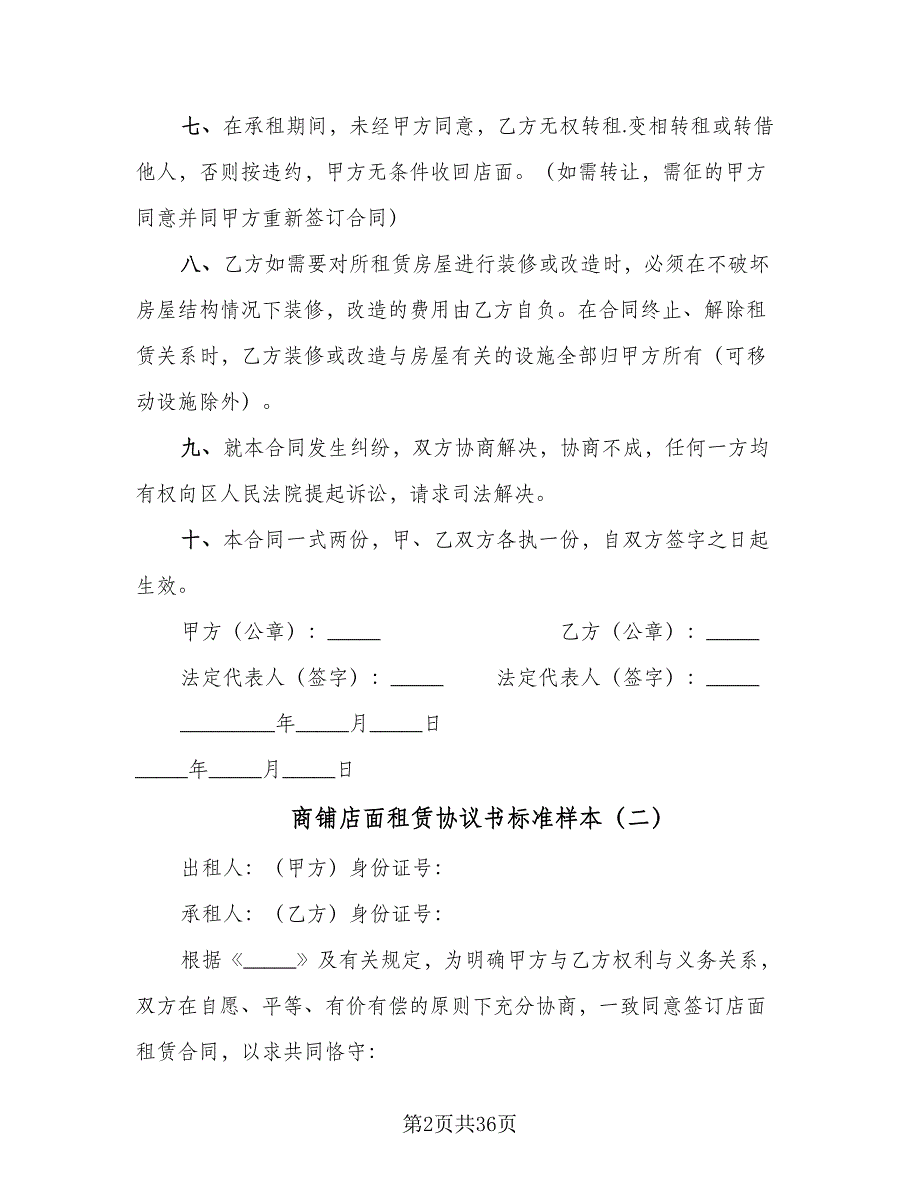 七、在承租期间，未经甲方同意，乙方无权转租.变相转租或转借
他人，否则按违约，甲方无条件收回店面。（如需转让，需征的甲方
同意并同甲方重新签订合同）
八、乙方如需要对所租赁房屋进行装修或改造时，必须在不破坏
房屋结构情况下装修，改造的费用由乙方自负。在合同终止、解除租
赁关系时，乙方装修或改造与房屋有关的设施全部归甲方所有（可移
动设施除外）。
九、就本合同发生纠纷，双方协商解决，协商不成，任何一方均
有权向区人民法院提起诉讼，请求司法解决。
十、本合同一式两份，甲、乙双方各执一份，自双方签字之日起
生效。
甲方（公章）：_____ 乙方（公章）：_____
法定代表人（签字）：_____ 法定代表人（签字）：_____
_________年_____月_____日
_____年_____月_____日
商铺店面租赁协议书标准样本（二）
出租人：（甲方）身份证号：
承租人：（乙方）身份证号：
根据《_____》及有关规定，为明确甲方与乙方权利与义务关系，
双方在自愿、平等、有价有偿的原则下充分协商，一致同意签订店面
租赁合同，以求共同恪守：
第2页共36页